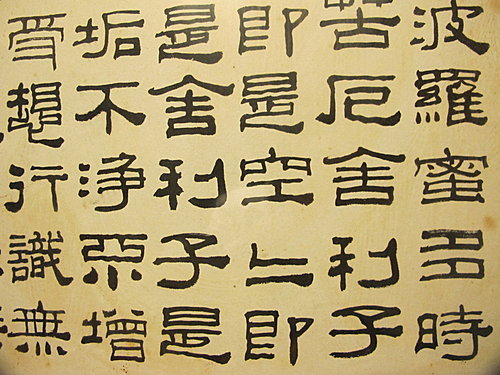 波羅蜜多時
苦厄舍利子
即是空二即
是舍利子是
垢不浄不增
受想行識無